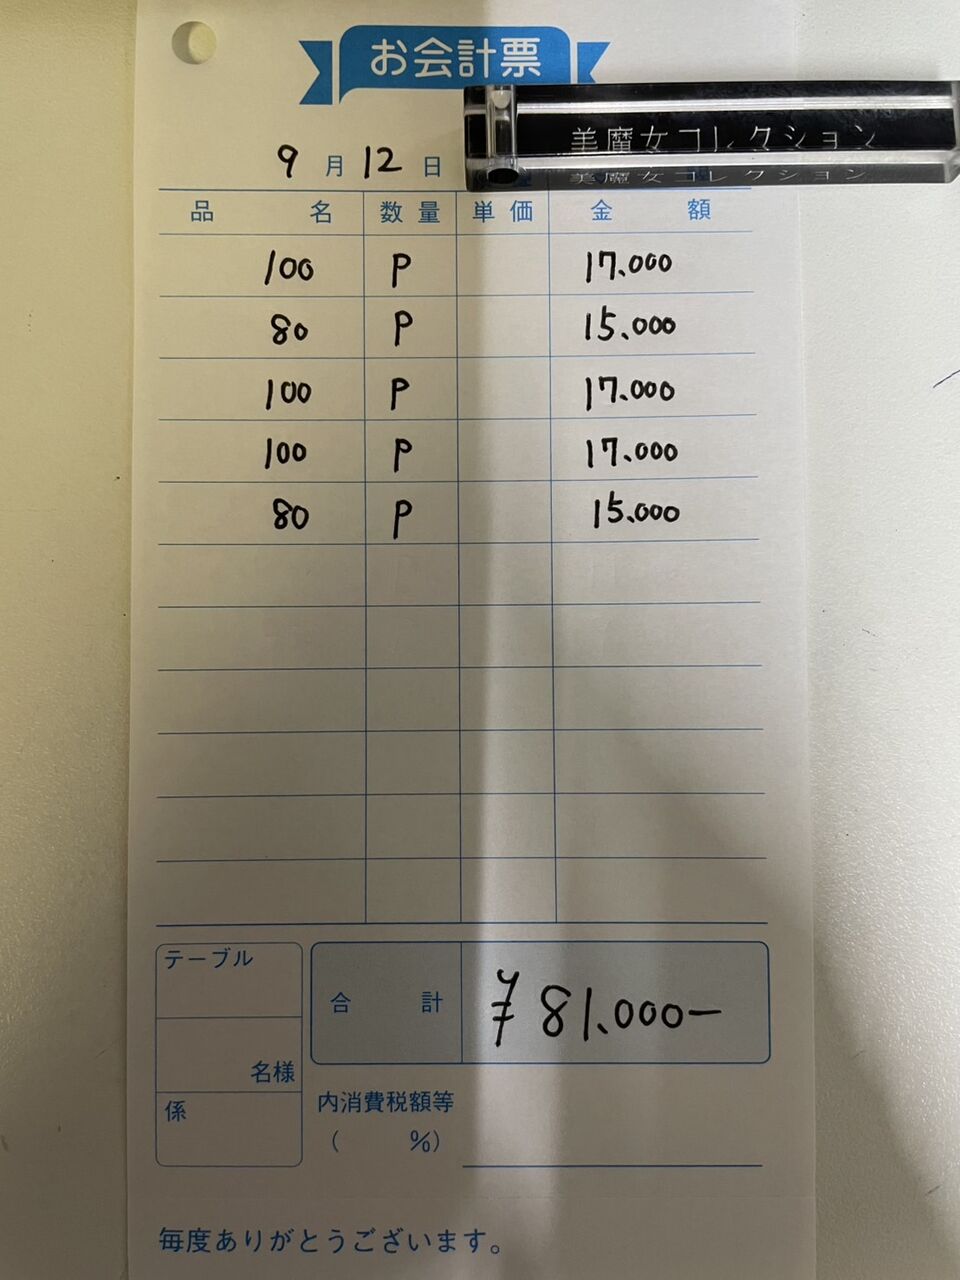 お会計票
美魔女コレクション
9月12日
品名 数量 単価 金額
100 P 17.000
80 P 15.000
100 P 17.000
100 P 17.000
80 P 15.000
テーブル
名様
係
合計 ¥81.000-
内消費税額等
( %)
毎度ありがとうございます。